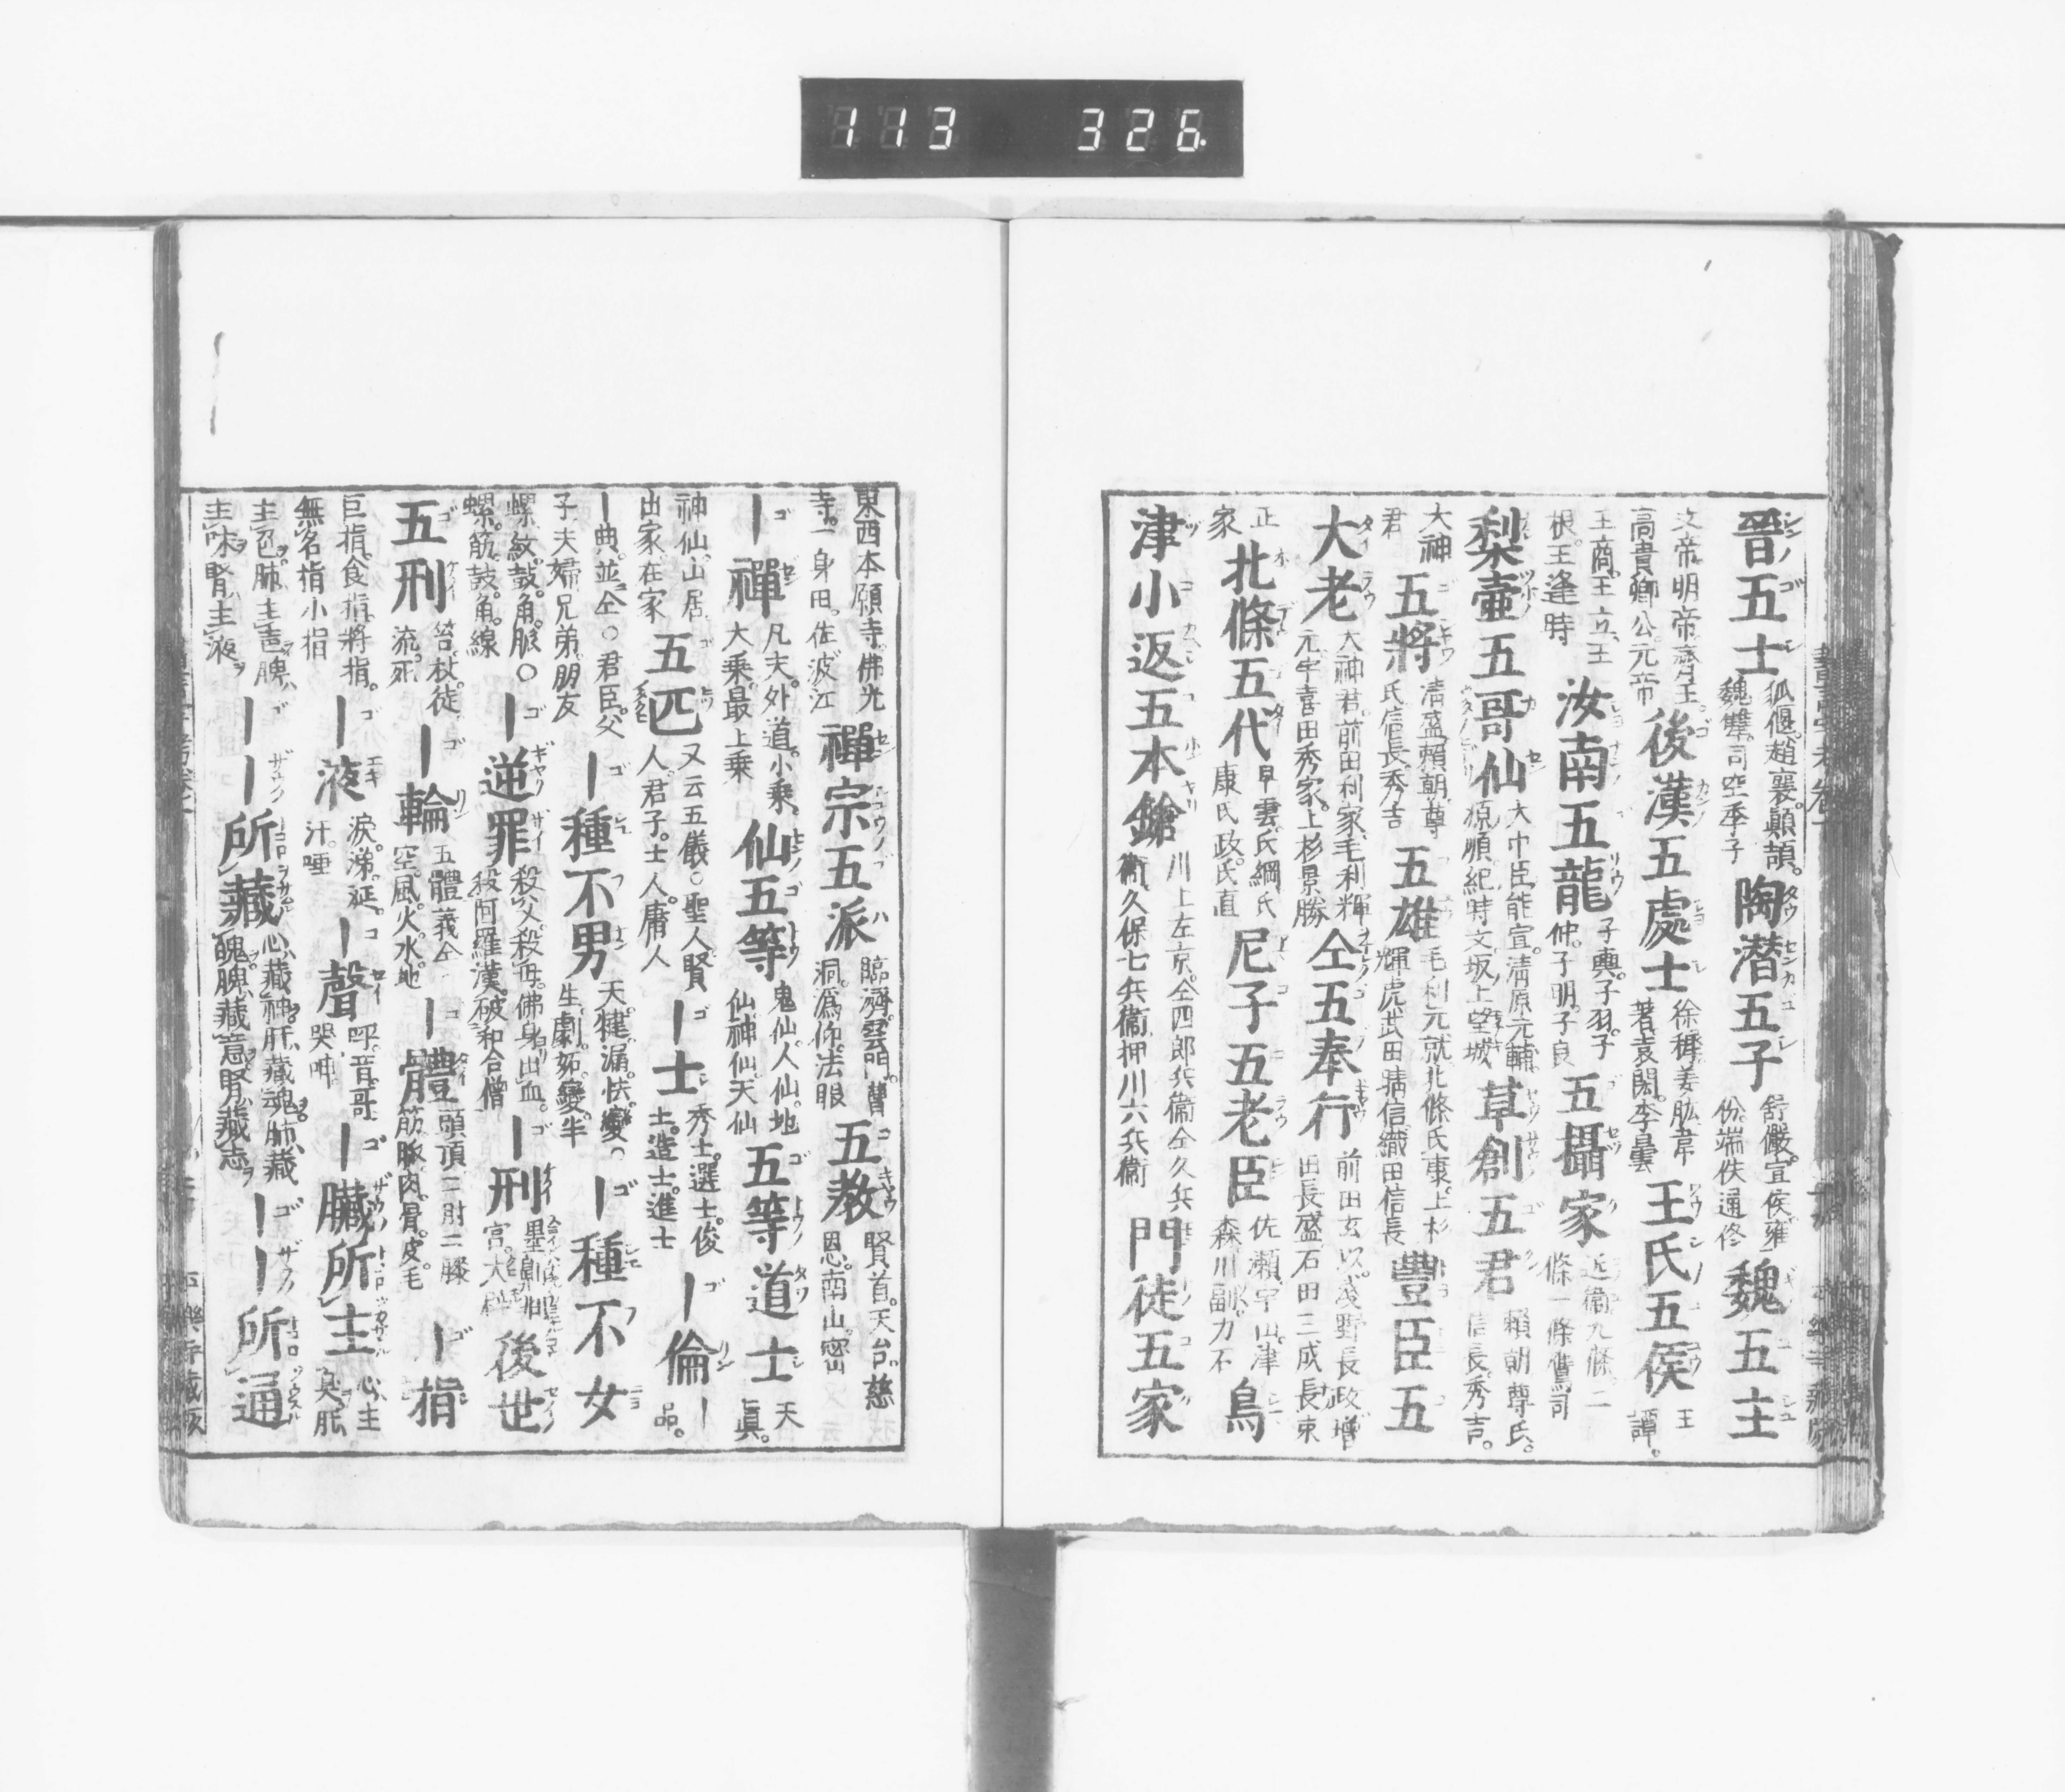 113 326
晉五士 狐偃。趙襄。顛頡。魏犨。司空季子 陶潛五子 舒儼。宣俟。雍份。端佚。通佟 魏五主
文帝。明帝。齊王。高貴卿公。元帝 後漢五處士 徐穉。姜肱。韋著。袁閎。李曇 王氏五侯 王譚。
王商。王立。王根。王逢時 汝南五龍 子輿。子羽。子仲。子明。子良 五攝家 近衞。九條。二條。一條。鷹司
梨壷五哥仙 大中臣能宣。清原元輔。源順。紀時文。坂上望城 草創五君 頼朝。尊氏。信長。秀吉。
大神君 五將 清盛。頼朝。尊氏。信長。秀吉 五雄 毛利元就。北條氏康。上杉輝虎。武田晴信。織田信長 豊臣五
大老 大神君。前田利家。毛利輝元。宇喜田秀家。上杉景勝 仝五奉行 前田玄以。浅野長政。増田長盛。石田三成。長束
正家 北條五代 早雲。氏綱。氏康。氏政。氏直 尼子五老臣 佐瀬。宇山。津森。川副。力不 鳥
津小返五本鎗 川上左京。仝四郎兵衞。仝久兵衞。久保七兵衞。押川六兵衞 門徒五家
東西本願寺。佛光寺。一身田。佐波江 禪宗五派 臨濟。雲門。曹洞。潙仰。法眼 五教 賢首。天台。慈恩。南山。密
｜禪 凡夫。外道。小乘。大乘。最上乘 仙五等 鬼仙。人仙。地仙。神仙。天仙 五等道士 天眞。
神仙。山居。出家。在家 五匹 又云五儀○聖人。賢人。君子。士人。庸人 ｜士 秀士。選士。俊士。造士。進士 ｜倫 ｜品。
｜典。並仝○君臣。父子。夫婦。兄弟。朋友 ｜種不男 天。犍。漏。怢。變○生。劇。妬。變。半 ｜種不女
螺。紋。鼓。角。脈○螺。筋。鼓。角。線 ｜逆罪 殺父。殺母。佛身出血。殺阿羅漢。破和合僧 ｜刑 墨。劓。剕。宮。大辟 後世
五刑 笞。杖。徒。流。死 ｜輪 五體義仝 空。風。火。水。地 ｜體 頭頂。二肘。二膝 筋。脈。肉。骨。皮毛 ｜指
巨指。食指。將指。無名指。小指 ｜液 淚。涕。涎。汗。唾 ｜聲 呼。音。哥。哭。呻。 ｜臓所主 心主臭。肝
主色。肺主聲。脾主味。腎主液 ｜｜所藏 心藏神。肝藏魂。肺藏魄。脾藏意。腎藏志 ｜｜所通